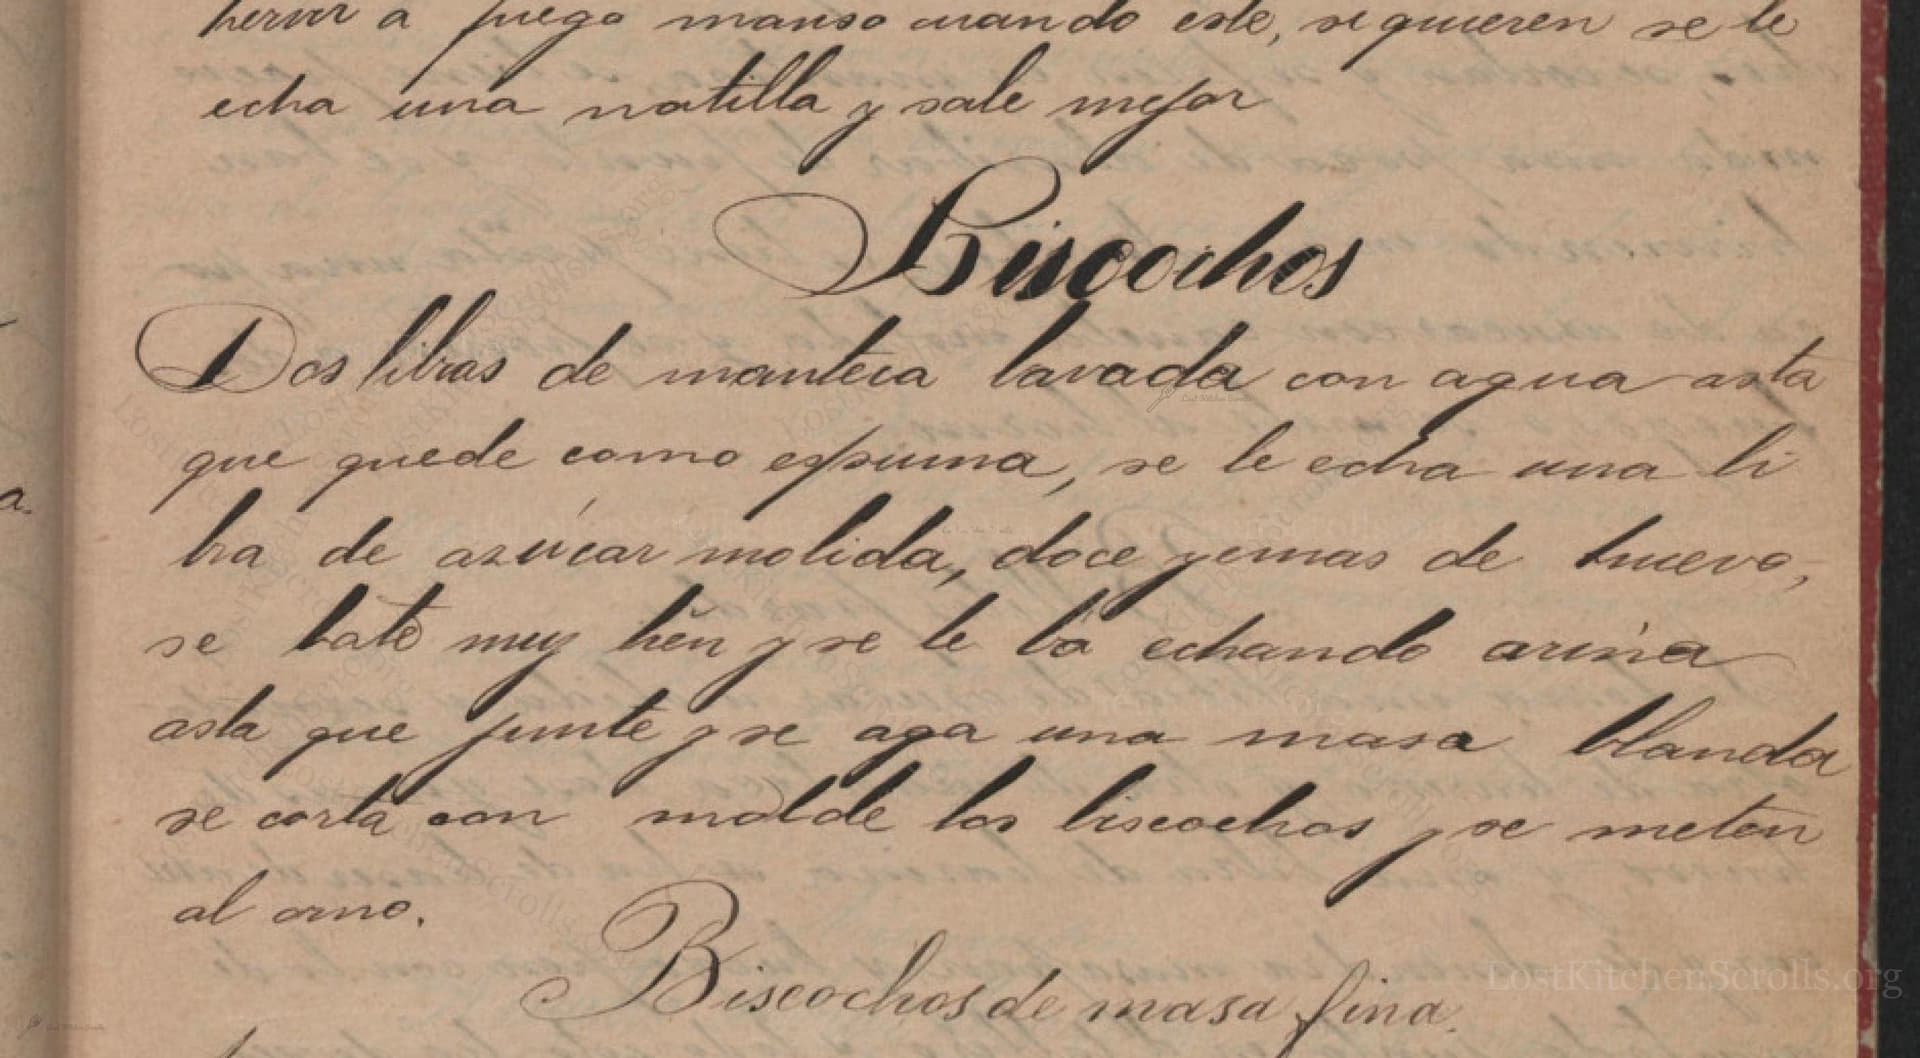 hervir a fuego manso cuando este, si quieren se le
echa una natilla y sale mejor
Biscochos
Dos libras de manteca lavada con agua asta
que quede como espuma, se le echa una li
bra de azúcar molida, doce yemas de huevo,
se bate muy bien y se le ba echando arina
asta que junte y se aga una masa blanda
se corta con molde los biscochos y se meten
al orno.
Biscochos de masa fina.
a.
LostKitchenScrolls.org